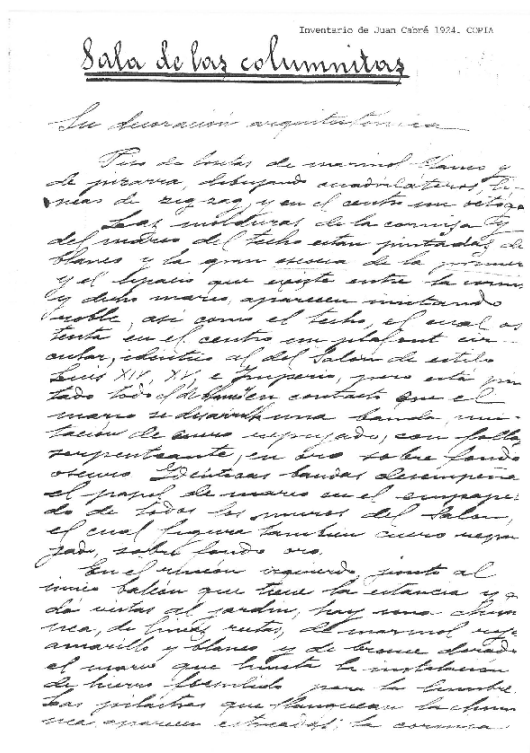 Inventario de Juan Cabré 1924. COPIA
Sala de las columnitas
Su decoración arquitectónica
Piso de losas de marmol blanco y
de pizarra, dibujando cuadriláteros, li
neas de zig-zag, y en el centro un octógo
Las molduras de la cornisa y
del marco del techo están pintadas de
blanco y la gran escocia de la primera
y el espacio que existe entre la corni
y dicho marco, aparecen imitando
roble, así como el techo, el cual os
tenta en el centro un plafont cir
cular, idéntico al del Salón de estilo
Luis XIV, XV, e Imperio, pero está pin
tado todo él de blanco en contacto que el
marco se desarrolla una banda, imi
tación de cuero repujado, con follaje
serpenteante, en oro sobre fondo
oscuro. Idénticas bandas desempeña
el papel de marco en el empape
do de todos los muros del Salón,
el cual figura también cuero repu
jado, sobre fondo oro.
En el rincón izquierdo, junto al
único balcón que tiene la estancia y
da vistas al jardín, hay una chime
nea, de lineas rectas, de marmol rojo
amarillo y blanco, y de bronce dorado
el marco que limita la instalación
de hierro fundido para la lumbre.
Las pilastras que flanquean la chime
nea aparecen estriadas; la corona